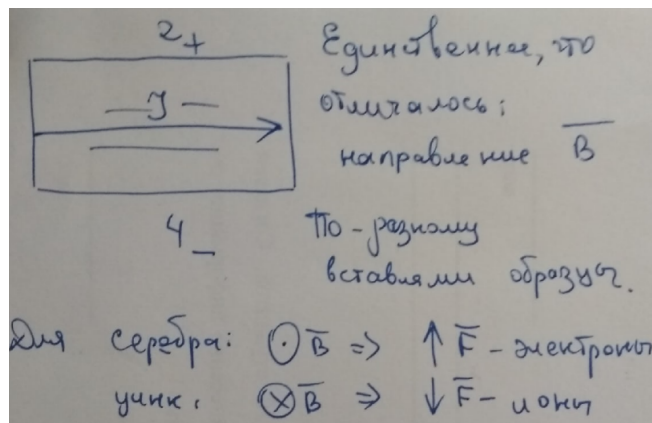 2 +
Единственное, что
отличалось:
J
направление B̅
4 –
По-разному
вставляли образцы.
Для серебра: ⊙ B̅ => ↑ F̅ - электроны
цинк: ⊗ B̅ => ↓ F̅ - ионы